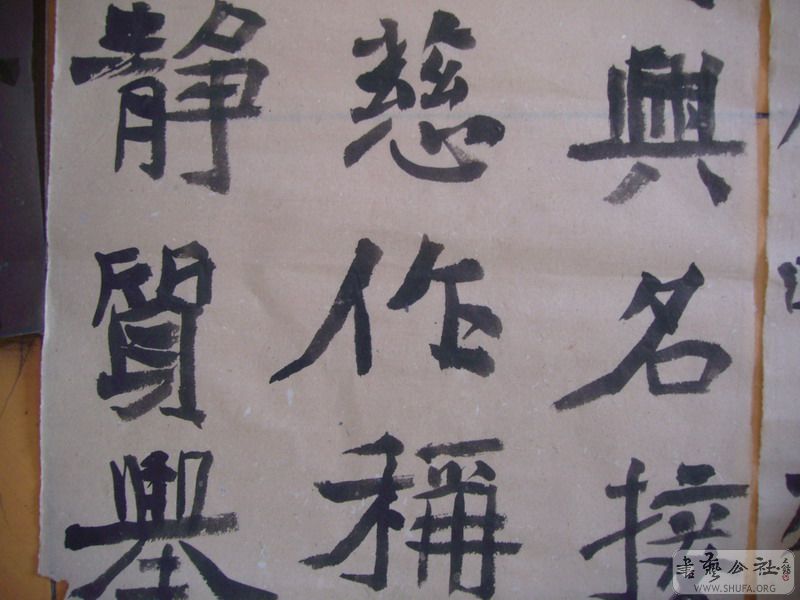 興名
慈作稱
靜質
書藝公社
WWW.SHUFA.ORG